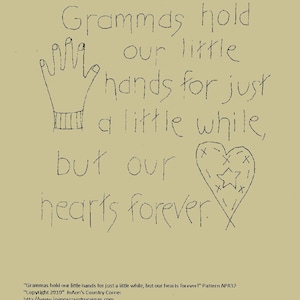 Grammas hold
our little
hands for just
a little while,
but our
hearts forever.
"Grammas hold our little hands for just a little while, but our hearts forever!" Pattern
"Copyright 2010" JoAnn's Country Corner